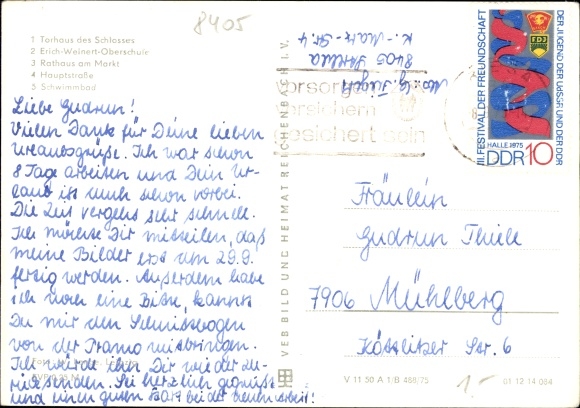 8405
1 Torhaus des Schlosses
2 Erich-Weinert-Oberschule
3 Rathaus am Markt
4 Hauptstraße
5 Schwimmbad
Liebe Gudrun!
Vielen Dank für Deine lieben
Urlaubsgrüße. Ich war schon
8 Tage arbeiten und Dein Ur-
laub ist auch schon vorbei.
Die Zeit vergeht sehr schnell.
Ich möchte Dir mitteilen, daß
meine Bilder erst am 29.9.
fertig werden. Außerdem habe
ich noch eine Bitte, kannst
Du mir den Schnittbogen
von der Pramo mitbringen.
Ich würde ihn Dir wieder zu-
rücksenden. Sei herzlich gegrüßt
und einen guten Start bei der neuen Arbeit!
VEB BILD UND HEIMAT REICHENBACH I. V.
8405
K.-Marx-Str. 4
vorsorgen
versichern
gesichert sein
III. FESTIVAL DER FREUNDSCHAFT
DER JUGEND DER UDSSR UND DER DDR
FDJ
HALLE 1975
DDR 10
Fräulein
Gudrun Thiele
7906 Mühlberg
Köttlitzer Str. 6
V 11 50 A 1/B 488/75
01 12 14 084
1.-